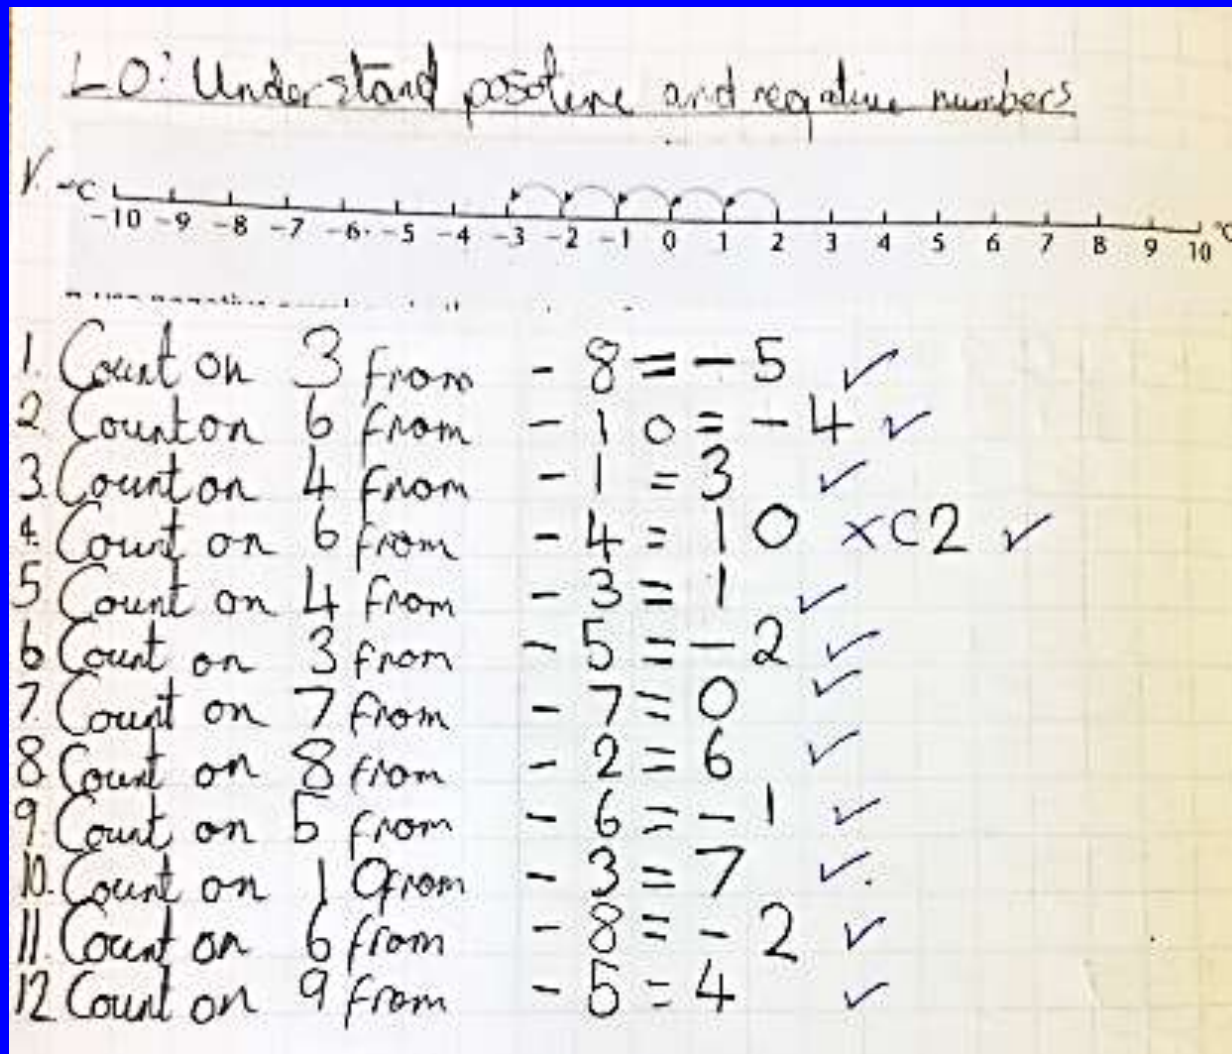 LO: Understand posotive and negative numbers
°C -10 -9 -8 -7 -6 -5 -4 -3 -2 -1 0 1 2 3 4 5 6 7 8 9 10 °C
1. Count on 3 from - 8 = - 5 ✓
2. Count on 6 from - 10 = - 4 ✓
3. Count on 4 from - 1 = 3 ✓
4. Count on 6 from - 4 = 10 ×C2 ✓
5 Count on 4 from - 3 = 1 ✓
6 Count on 3 from - 5 = - 2 ✓
7. Count on 7 from - 7 = 0 ✓
8. Count on 8 from - 2 = 6 ✓
9. Count on 5 from - 6 = - 1 ✓
10. Count on 10 from - 3 = 7 ✓.
11. Count on 6 from - 8 = - 2 ✓
12 Count on 9 from - 5 = 4 ✓